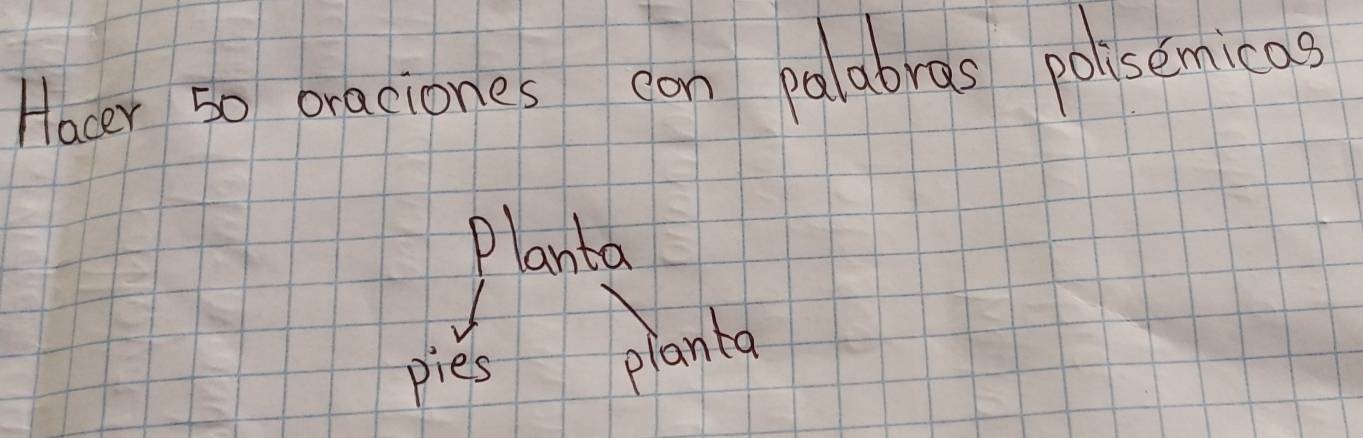 Hacer 50 oraciones con palabras polisémicas
Planta
pies planta